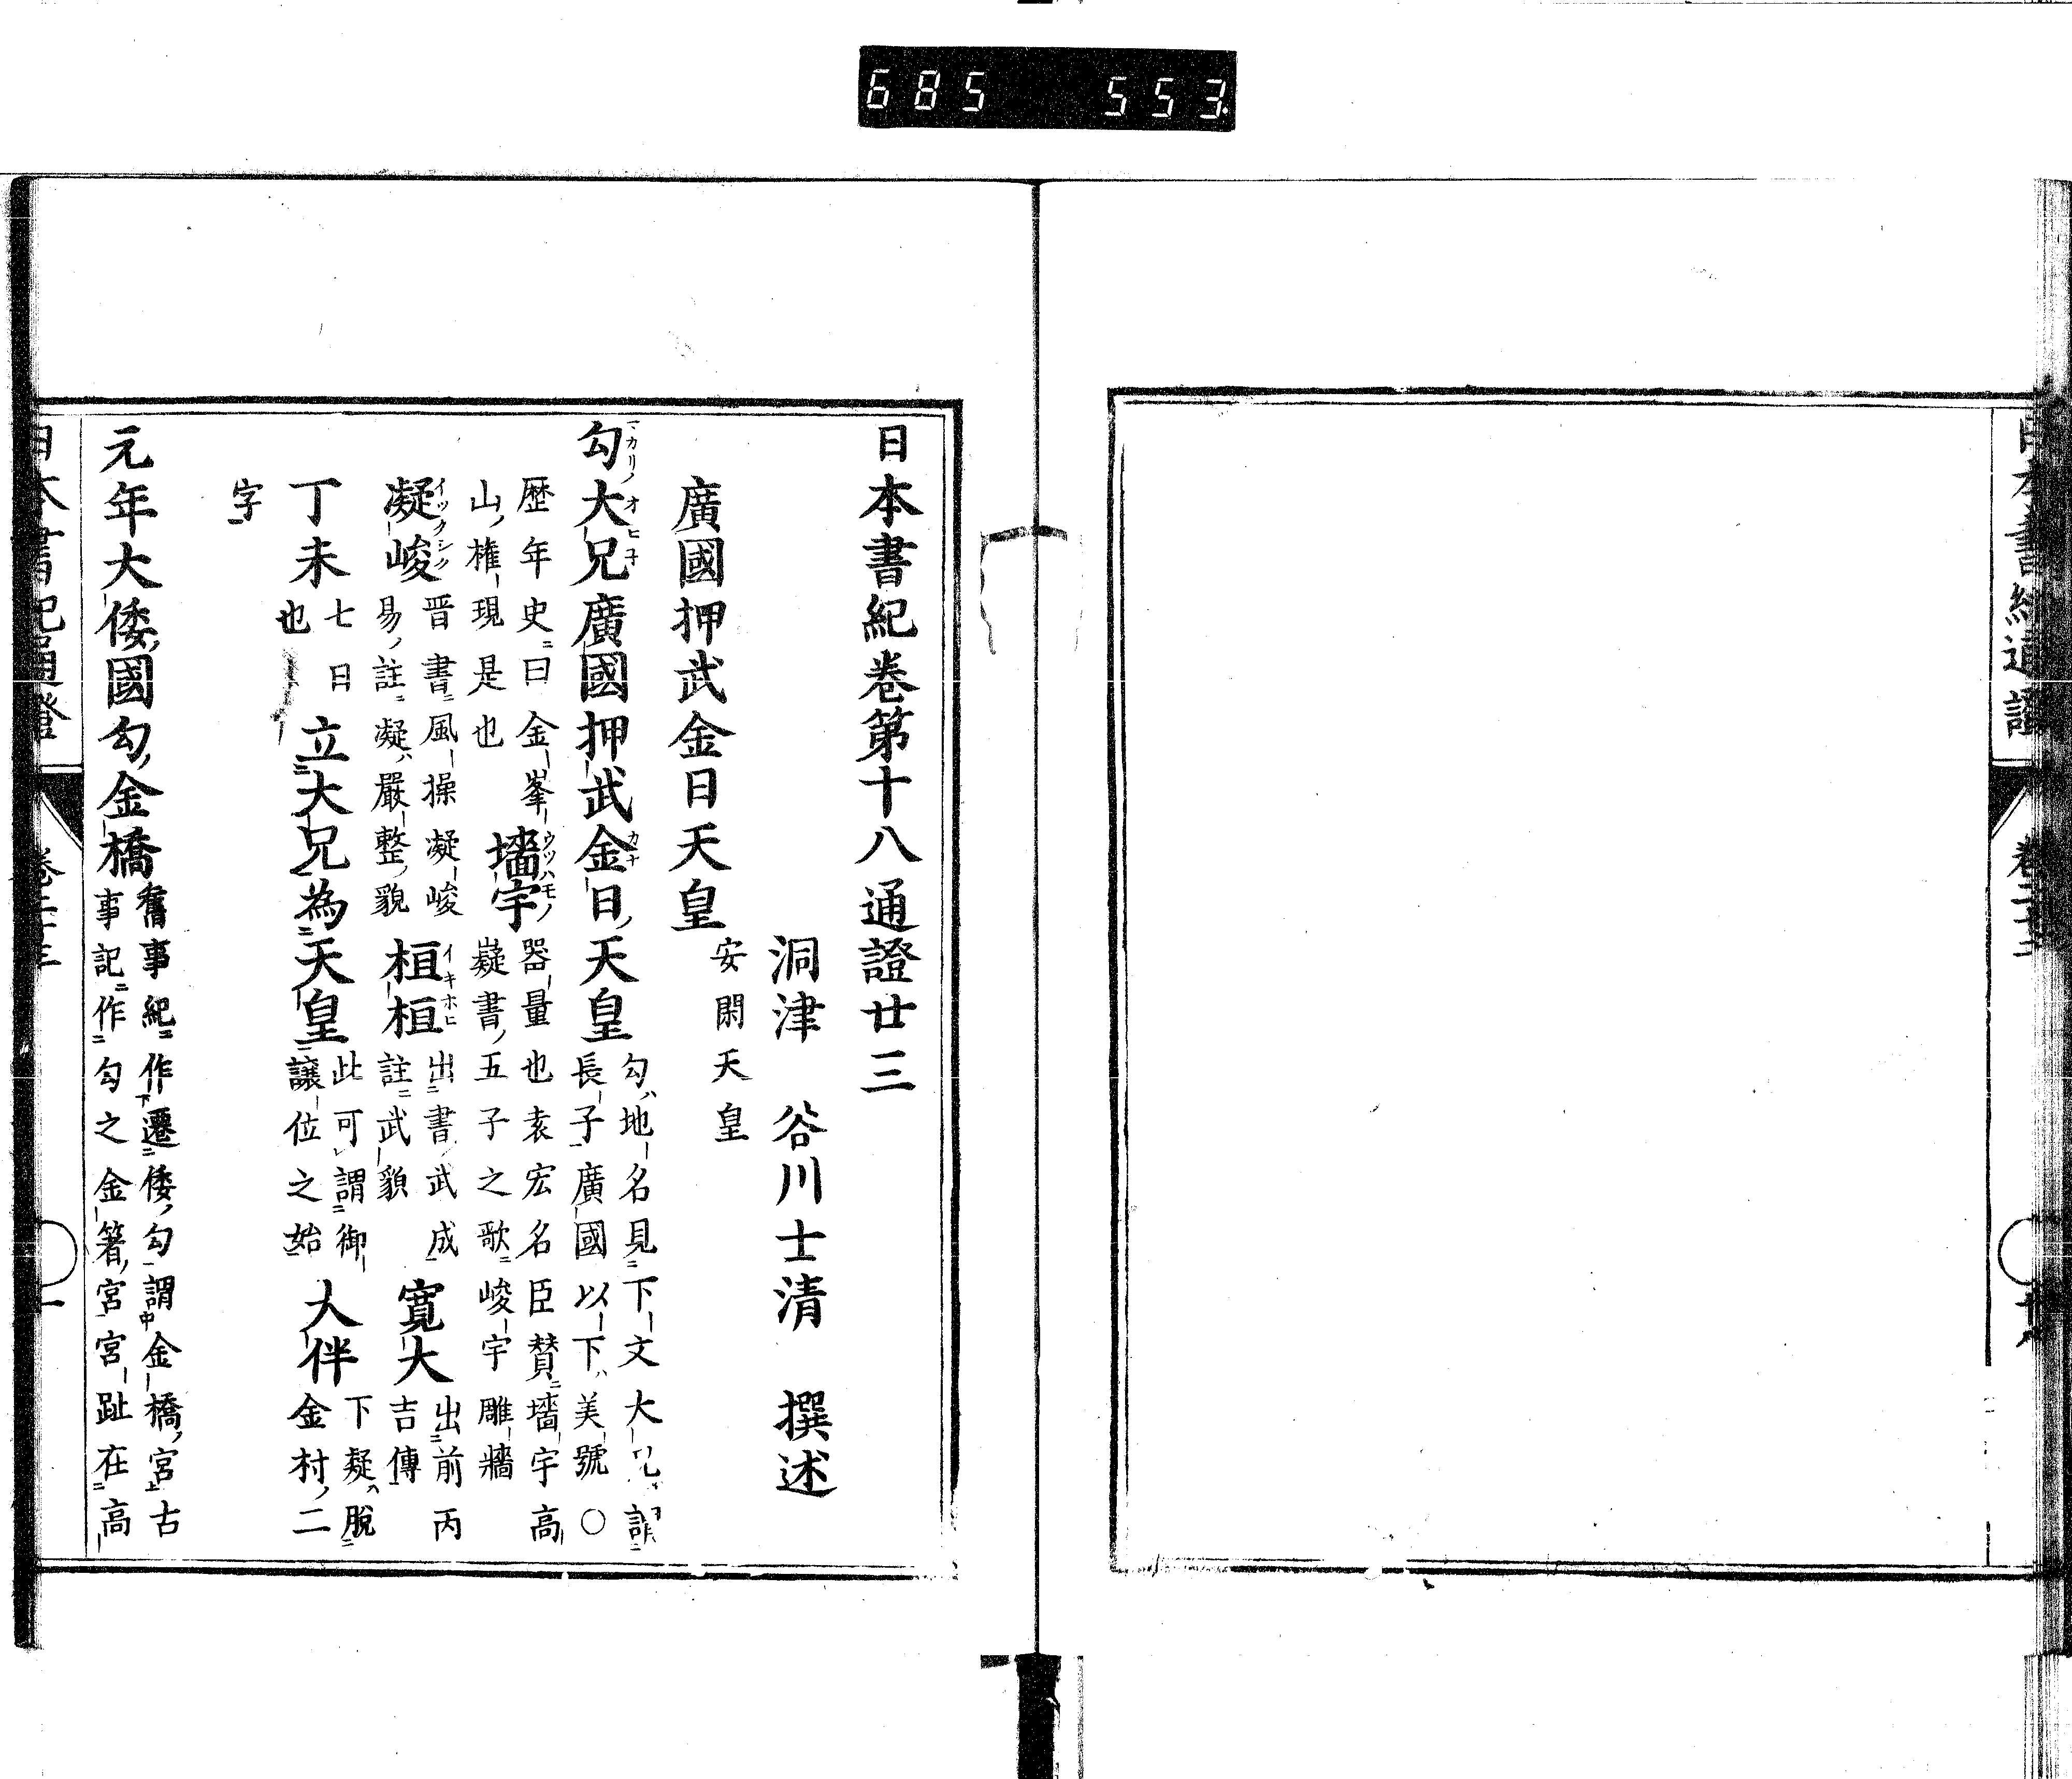 685 553
日本書紀通證
日本書紀卷第十八通證廿三
洞津 谷川士清 撰述
廣國押武金日天皇 安閑天皇
勾大兄廣國押武金日天皇 勾地名見下文大兄謂
長子廣國以下美號○
歴年史曰金峯
山權現是也 墻宇 器量也袁宏名臣賛墻宇高
嶷書五子之歌峻宇雕牆
凝峻 晋書風操凝峻
易註凝嚴整貌 桓桓 出書武成
註武貌 寛大 出前丙
吉傳
丁未 七日
也 立大兄為天皇 此可謂御
讓位之始 大伴 下疑脫
金村二
字
元年大倭國勾金橋 舊事紀作遷倭勾謂金橋宮古
事記作勾之金箸宮宮趾在高
日本書紀通證 卷二十三 一